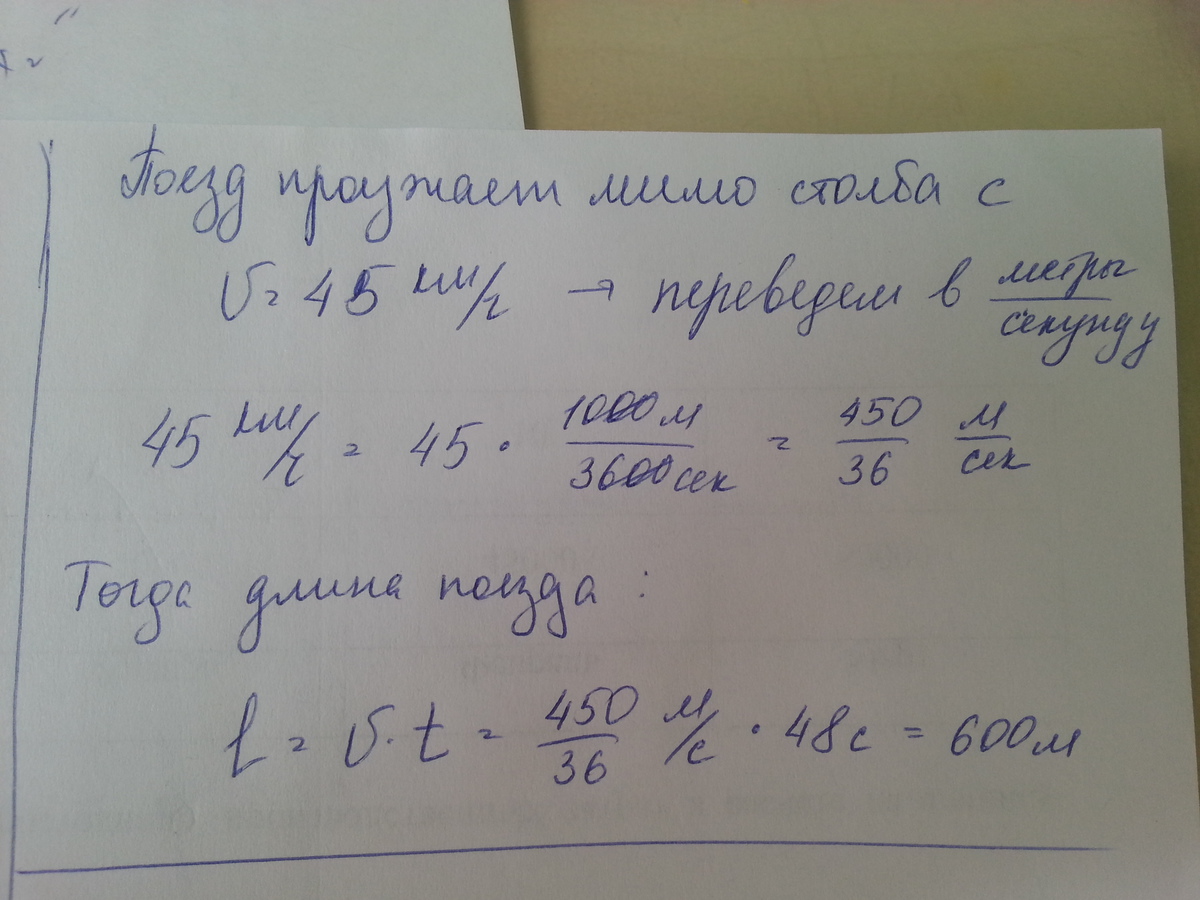 Поезд проезжает мимо столба с
v = 45 км/ч → переведем в метры/секунду
45 км/ч = 45 · 1000 м/3600 сек = 450/36 м/сек
Тогда длина поезда :
l = v · t = 450/36 м/с · 48 с = 600 м